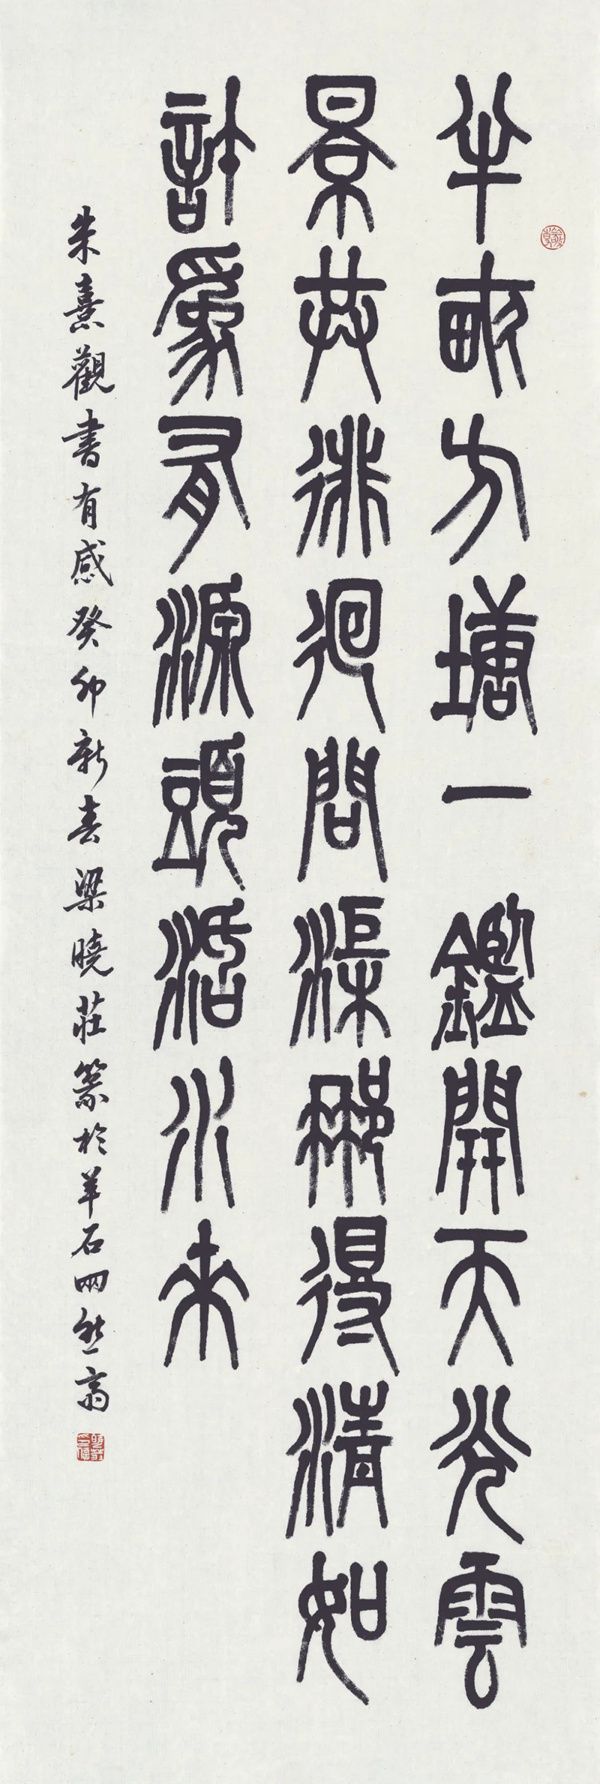 半畝方塘一鑑開天光雲
景共徘徊問渠那得清如
許爲有源頭活水來
朱熹觀書有感癸卯新春梁曉莊篆於羊石齋